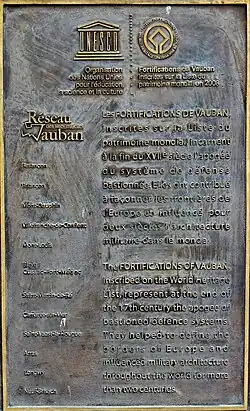 UNESCO
Organisation
des Nations Unies
pour l'éducation,
la science et la culture
Fortifications de Vauban
Inscrites sur la Liste du
patrimoine mondial en 2008
Réseau
Vauban
Les FORTIFICATIONS DE VAUBAN,
inscrites sur la Liste du
patrimoine mondial, incarnent
à la fin du XVIIe siècle l'apogée
du système de défense
bastionnée. Elles ont contribué
à façonner les frontières de
l'Europe et influencé pour
deux siècles l'architecture
militaire dans le monde.
The FORTIFICATIONS OF VAUBAN,
inscribed on the World Heritage
List, represent at the end of
the 17th century the apogee of
bastioned defence systems.
They helped to define the
borders of Europe and
influenced military architecture
throughout the world for more
than two centuries.
Besançon
Briançon
Mont-Dauphin
Villefranche-de-Conflent
Mont-Louis
Saint-Martin-de-Ré
Camaret-sur-Mer
Saint-Vaast-la-Hougue
Arras
Longwy
Neuf-Brisach